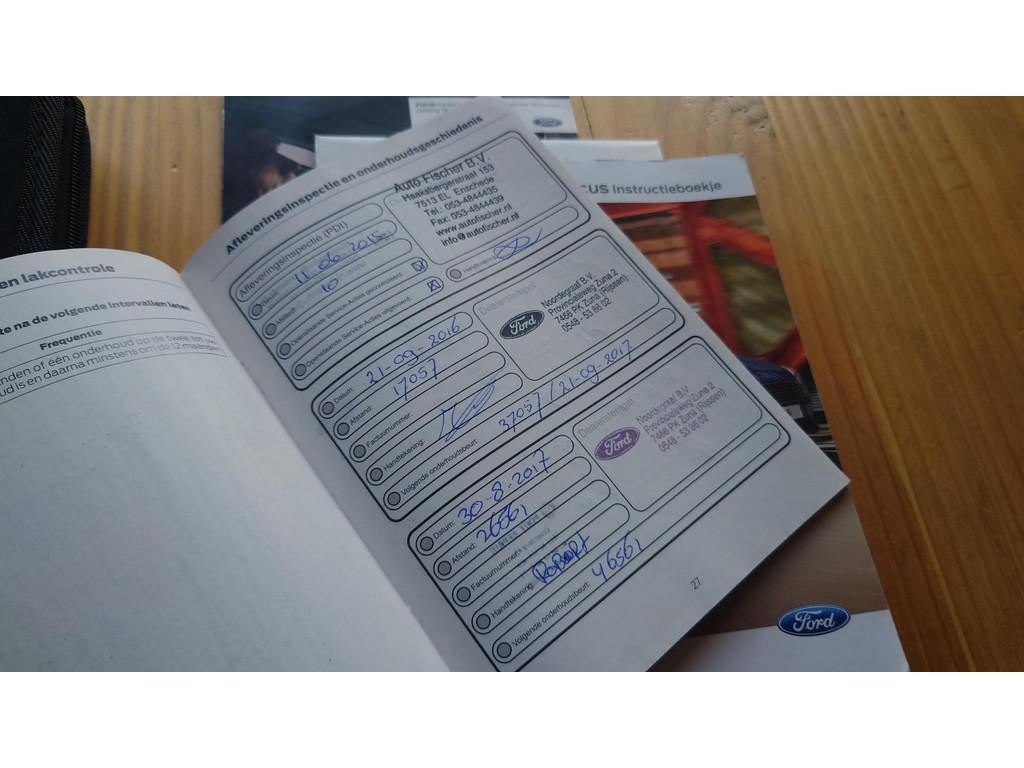 Ford
CUS Instructieboekje
en lakcontrole
te na de volgende intervallen laten
Frequentie
nden of één onderhoud op de twee
ud is en daarna minstens om de 12 maanden
Afleveringsinspectie en onderhoudsgeschiedenis
Afleveringsinspectie (PDI)
Datum: 11.06.2015
Afstand: 10
Openstaande Service-Acties gecontroleerd:
Openstaande Service-Acties uitgevoerd:
Auto Fischer B.V.
Haaksbergerstraat 153
7513 EL Enschede
Tel.: 053-4844435
Fax: 053-4844439
www.autofischer.nl
info@autofischer.nl
Handtekening:
Datum: 21-09-2016
Afstand: 17057
Factuurnummer:
Handtekening:
Volgende onderhoudsbeurt: 37057 / 21-09-2017
Dealerstempel
Ford
Noordegraaf B.V.
Provincialeweg Zuna 2
7466 PK Zuna (Rijssen)
0548 - 53 86 02
Datum: 30-8-2017
Afstand: 26561
Factuurnummer:
Handtekening: Robert
Volgende onderhoudsbeurt: 46561
Dealerstempel
Ford
Noordegraaf B.V.
Provincialeweg Zuna 2
7466 PK Zuna (Rijssen)
0548 - 53 86 02
27
Ford